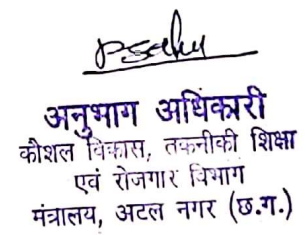 अनुभाग अधिकारी
कौशल विकास, तकनीकी शिक्षा
एवं रोजगार विभाग
मंत्रालय, अटल नगर (छ.ग.)